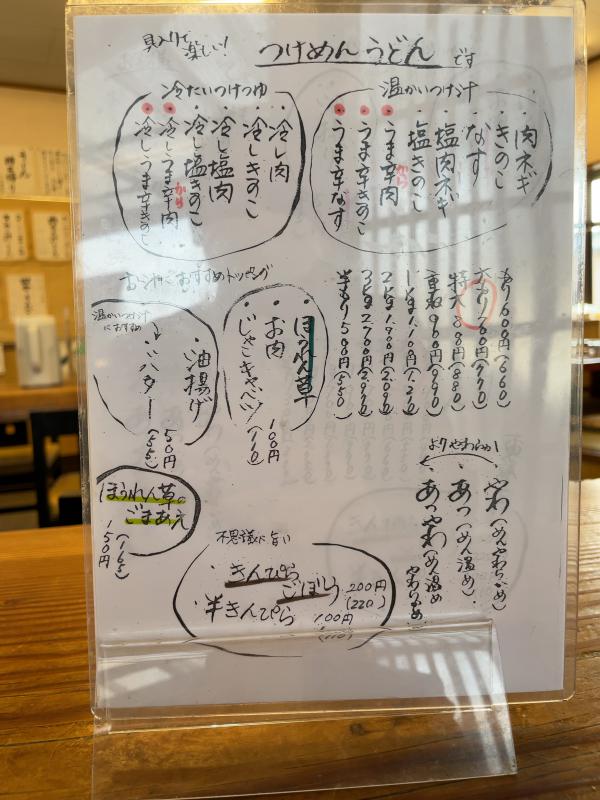 具入りで楽しい!
つけめんうどんです
温かいつけ汁
・肉ネギ
・きのこ
・なす
・塩肉ネギ
・塩きのこ
・うま辛肉
から
・うま辛きのこ
・うま辛なす
冷たいつけつゆ
・冷し肉
・冷しきのこ
・冷し塩肉
・冷し塩きのこ
・冷しうま辛肉
から
・冷しうま辛きのこ
もり600円(660)
大もり700円(770)
特大800円(880)
重ね900円(990)
半もり500円(550)
おすすめトッピング
・ほうれん草
・お肉
・じゃこキャベツ
100円
(110)
温かいつけ汁
におすすめ
・油揚げ
・バター
50円
(55)
ほうれん草の
ごまあえ
150円
(165)
よりやわらかい
・やわ(めんやわらかめ)
・あつ(めん温め)
・あつやわ(めん温め
やわらかめ)
不思議に旨い
・きんぴら
ごぼう 200円
(220)
・半きんぴら 100円
(110)